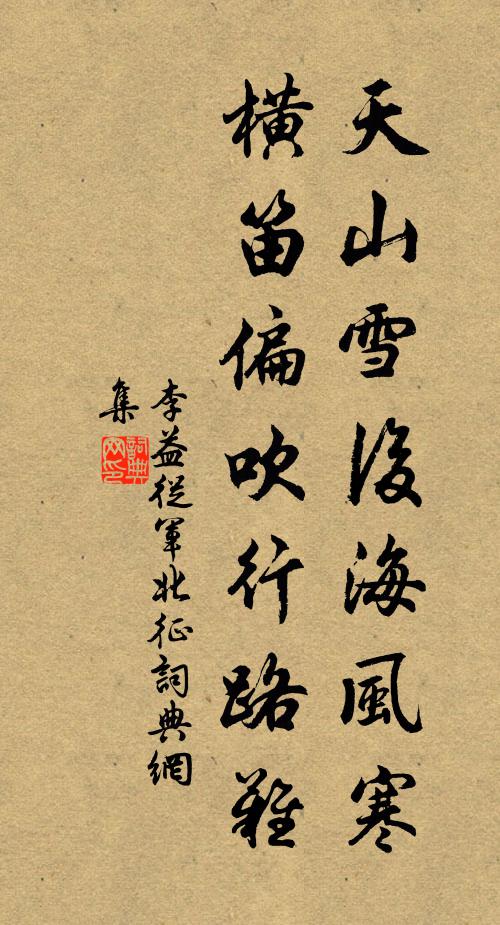 天山雪後海風寒
橫笛偏吹行路難
李益從軍北征詞典網
集
詞典網印